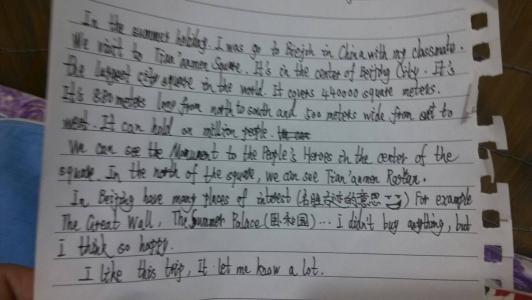 In the summer holiday. I was go to Beijch in China with my classmate.
We visit to Tian'anmen Square. It's in the center of Beijhg City. It's
the largest city square in the world. It covers 440000 square meters.
It's 880 meters long from north to south and 500 meters wide from east to
west. It can hold an million people.
We can see the Monument to the People's Heroes in the center of the
square. In the north of the square, we can see Tian'anmen
In Beijhg have many places of interest (名胜古迹的意思) For example
The Great Wall, The Summer Palace (国)... I didn't buy anything, but
I think so happy.
I like this trip, It let me know a lot.